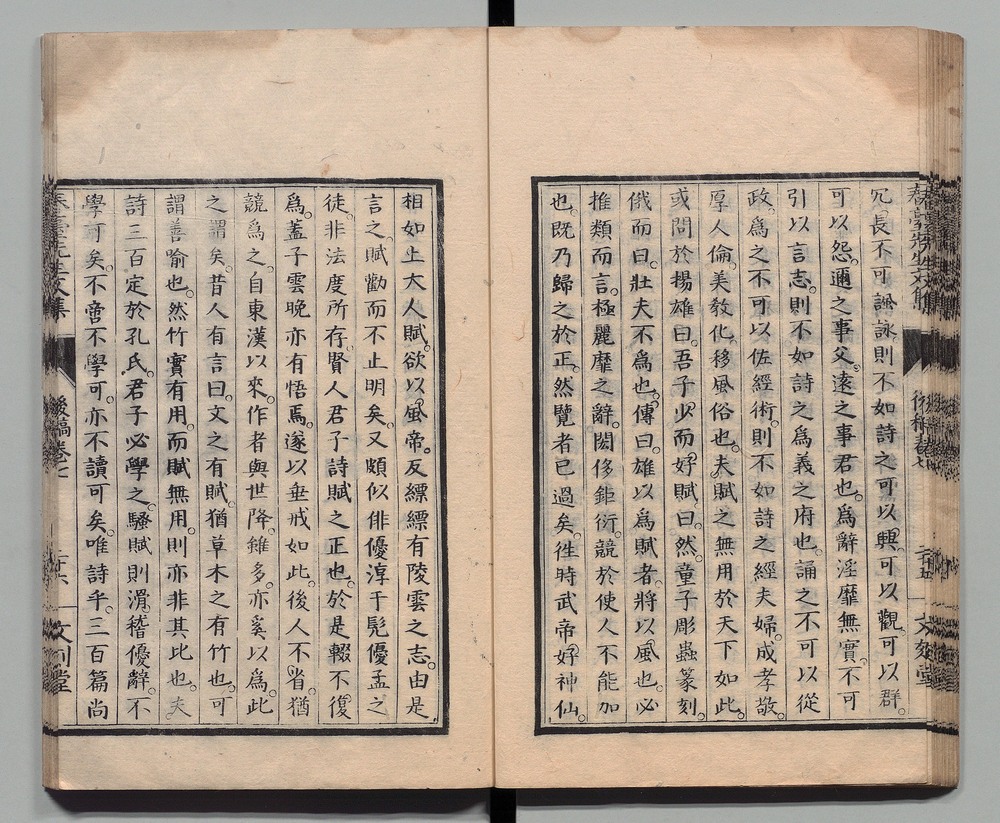 冗長不可諷詠則不如詩之可以興可以觀可以群
可以怨。邇之事父。遠之事君也。爲辭淫靡無實。不可
引以言志。則不如詩之爲義之府也。誦之不可以從
政。爲之不可以佐經術。則不如詩之經夫婦。成孝敬。
厚人倫。美敎化。移風俗也。夫賦之無用於天下如此。
或問於揚雄曰。吾子少而好賦。曰。然。童子彫蟲篆刻。
俄而曰。壯夫不爲也。傳曰。雄以爲賦者。將以風也。必
推類而言。極麗靡之辭。閎侈鉅衍。競於使人不能加
也。既乃歸之於正。然覽者已過矣。徃時武帝。好神仙。
相如上大人賦。欲以風帝。反縹縹有陵雲之志。由是
言之。賦勸而不止明矣。又頗似俳優淳于髡優孟之
徒。非法度所存。賢人君子詩賦之正也。於是輟不復
爲。蓋子雲晩亦有悟焉。遂以垂戒如此。後人不省。猶
競爲之。自東漢以來。作者與世降。雖多。亦奚以爲。此
之謂矣。昔人有言曰。文之有賦。猶草木之有竹也。可
謂善喻也。然竹實有用。而賦無用。則亦非其比也。夫
詩三百定於孔氏。君子必學之。騷賦則滑稽優辭。不
學可矣。不啻不學可。亦不讀可矣。唯詩乎。三百篇尚
春臺先生文集
後稿卷七
廿六
文刻堂